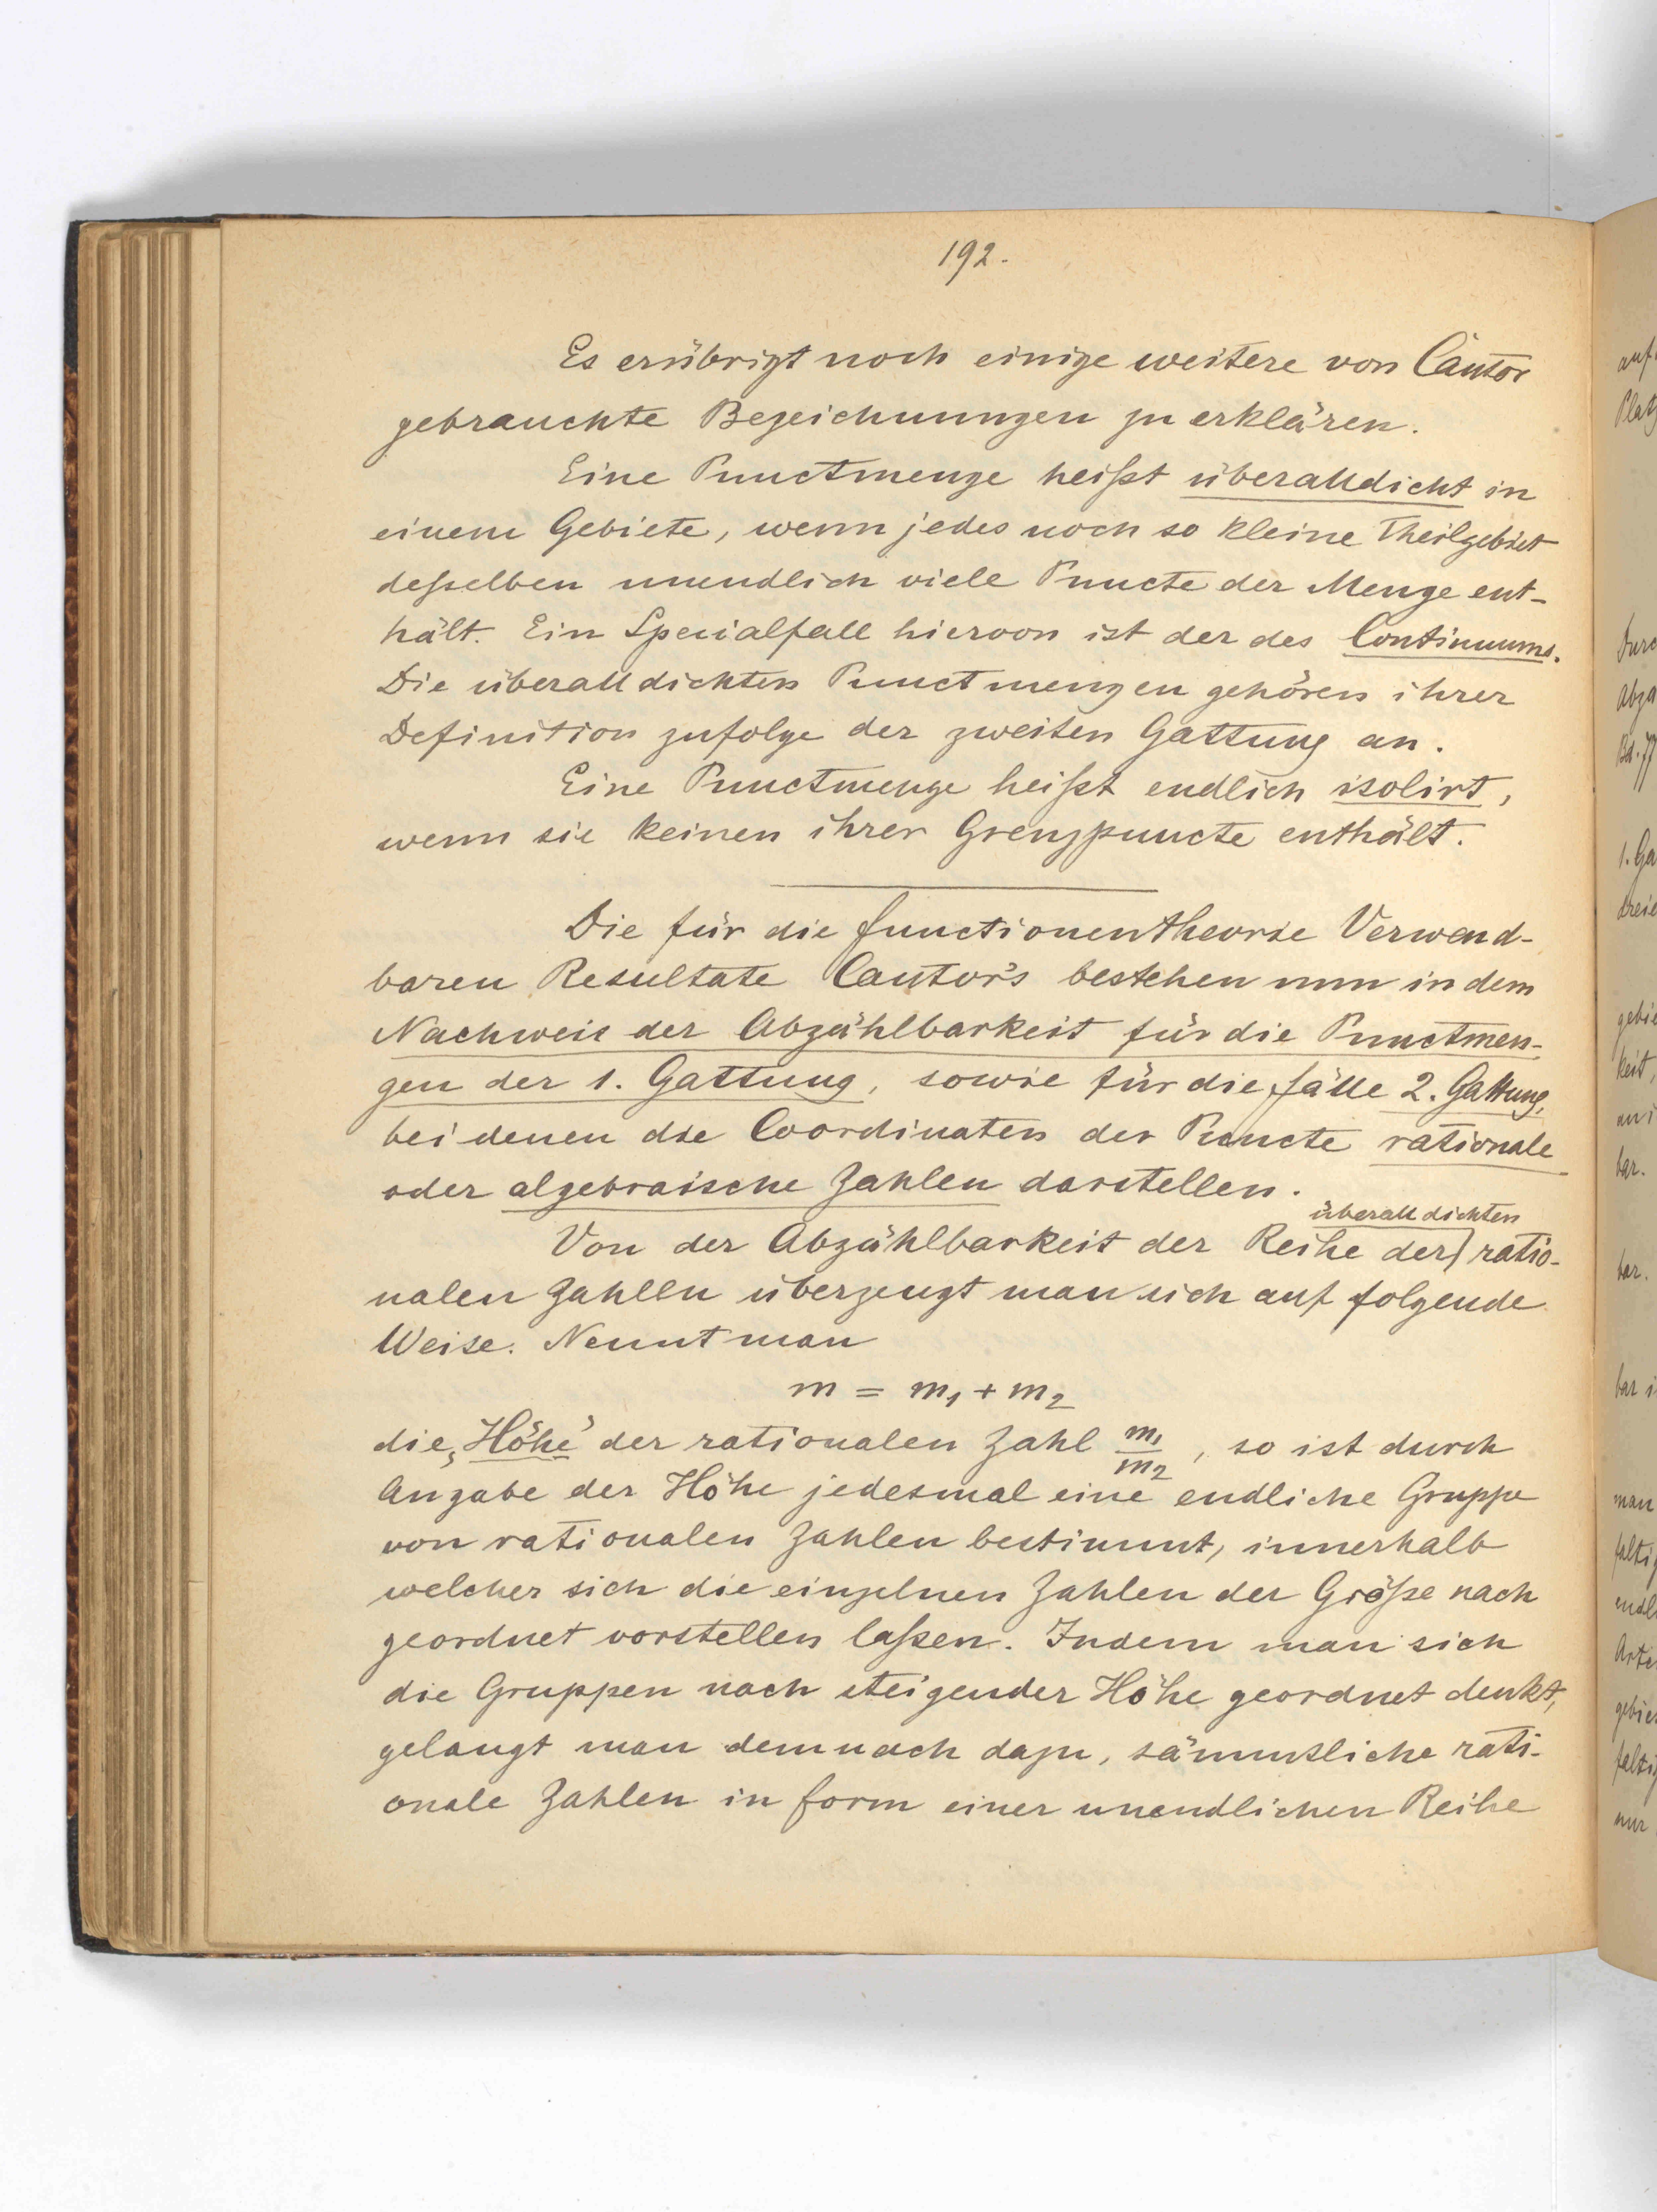 192.
Es erübrigt noch einige weitere von Cantor
gebrauchte Bezeichnungen zu erklären.
Eine Punctmenge heißt überalldicht in
einem Gebiete, wenn jedes noch so kleine Theilgebiet
deßelben unendlich viele Puncte der Menge ent-
hält. Ein Specialfall hiervon ist der des Continuums.
Die überalldichten Punctmengen gehören ihrer
Definition zufolge der zweiten Gattung an.
Eine Punctmenge heißt endlich isolirt,
wenn sie keinen ihrer Grenzpuncte enthält.
Die für die Functionentheorie Verwend-
baren Resultate Cantor's bestehen nun in dem
Nachweis der Abzählbarkeit für die Punctmen-
gen der 1. Gattung, sowie für die Fälle 2. Gattung,
bei denen die Coordinaten der Puncte rationale
oder algebraische Zahlen darstellen.
überalldichten
Von der Abzählbarkeit der Reihe der ratio-
nalen Zahlen überzeugt man sich auf folgende
Weise. Nennt man
m = m₁ + m₂
die „Höhe" der rationalen Zahl m₁/m₂, so ist durch
Angabe der Höhe jedesmal eine endliche Gruppe
von rationalen Zahlen bestimmt, innerhalb
welcher sich die einzelnen Zahlen der Größe nach
geordnet vorstellen laßen. Indem man sich
die Gruppen nach steigender Höhe geordnet denkt,
gelangt man demnach dazu, sämmtliche rati-
onale Zahlen in Form einer unendlichen Reihe